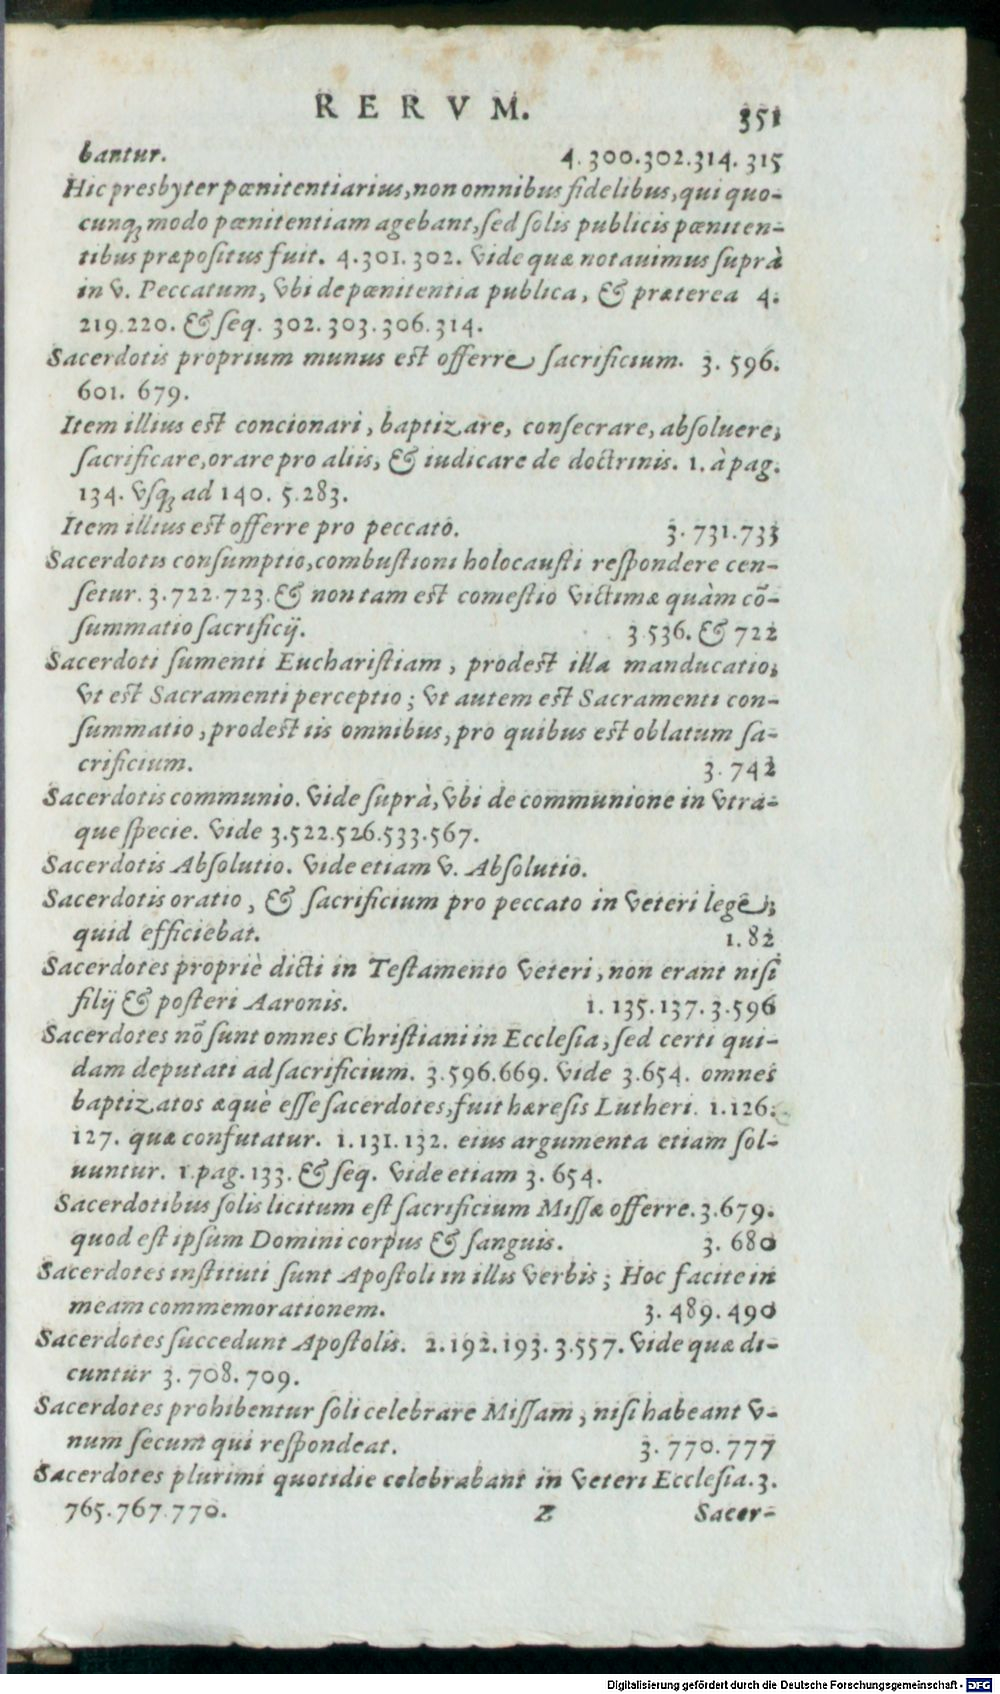 RERVM. 351
bantur. 4. 300. 302. 314. 315
Hic presbyter pœnitentiarius, non omnibus fidelibus, qui quo-
cunqꝫ modo pœnitentiam agebant, sed solis publicis pœniten-
tibus præpositus fuit. 4. 301. 302. Vide quæ notauimus suprà
in V. Peccatum, Vbi de pœnitentia publica, & præterea 4.
219. 220. & seq. 302. 303. 306. 314.
Sacerdotis proprium munus est offerre sacrificium. 3. 596.
601. 679.
Item illius est concionari, baptizare, consecrare, absoluere,
sacrificare, orare pro aliis, & iudicare de doctrinis. 1. à pag.
134. Vsqꝫ ad 140. 5. 283.
Item illius est offerre pro peccato. 3. 731. 733
Sacerdotis consumptio, combustioni holocausti respondere cen-
setur. 3. 722. 723. & non tam est comestio Victimæ quàm cõ-
summatio sacrificij. 3. 536. & 722
Sacerdoti sumenti Eucharistiam, prodest illa manducatio,
Vt est Sacramenti perceptio; Vt autem est Sacramenti con-
summatio, prodest iis omnibus, pro quibus est oblatum sa-
crificium. 3. 742
Sacerdotis communio. Vide suprà, Vbi de communione in Vtra-
que specie. Vide 3. 522. 526. 533. 567.
Sacerdotis Absolutio. Vide etiam V. Absolutio.
Sacerdotis oratio, & sacrificium pro peccato in Veteri lege,
quid efficiebat. 1. 82
Sacerdotes propriè dicti in Testamento Veteri, non erant nisi
filij & posteri Aaronis. 1. 135. 137. 3. 596
Sacerdotes nõ sunt omnes Christiani in Ecclesia, sed certi qui-
dam deputati ad sacrificium. 3. 596. 669. Vide 3. 654. omnes
baptizatos æquè esse sacerdotes, fuit hæresis Lutheri. 1. 126.
127. quæ confutatur. 1. 131. 132. eius argumenta etiam sol-
uuntur. 1. pag. 133. & seq. Vide etiam 3. 654.
Sacerdotibus solis licitum est sacrificium Missæ offerre. 3. 679.
quod est ipsum Domini corpus & sanguis. 3. 680
Sacerdotes instituti sunt Apostoli in illis Verbis; Hoc facite in
meam commemorationem. 3. 489. 490
Sacerdotes succedunt Apostolis. 2. 192. 193. 3. 557. Vide quæ di-
cuntur 3. 708. 709.
Sacerdotes prohibentur soli celebrare Missam, nisi habeant V-
num secum qui respondeat. 3. 770. 777
Sacerdotes plurimi quotidie celebrabant in Veteri Ecclesia. 3.
765. 767. 770. Z Sacer-
Digitalisierung gefördert durch die Deutsche Forschungsgemeinschaft - DFG